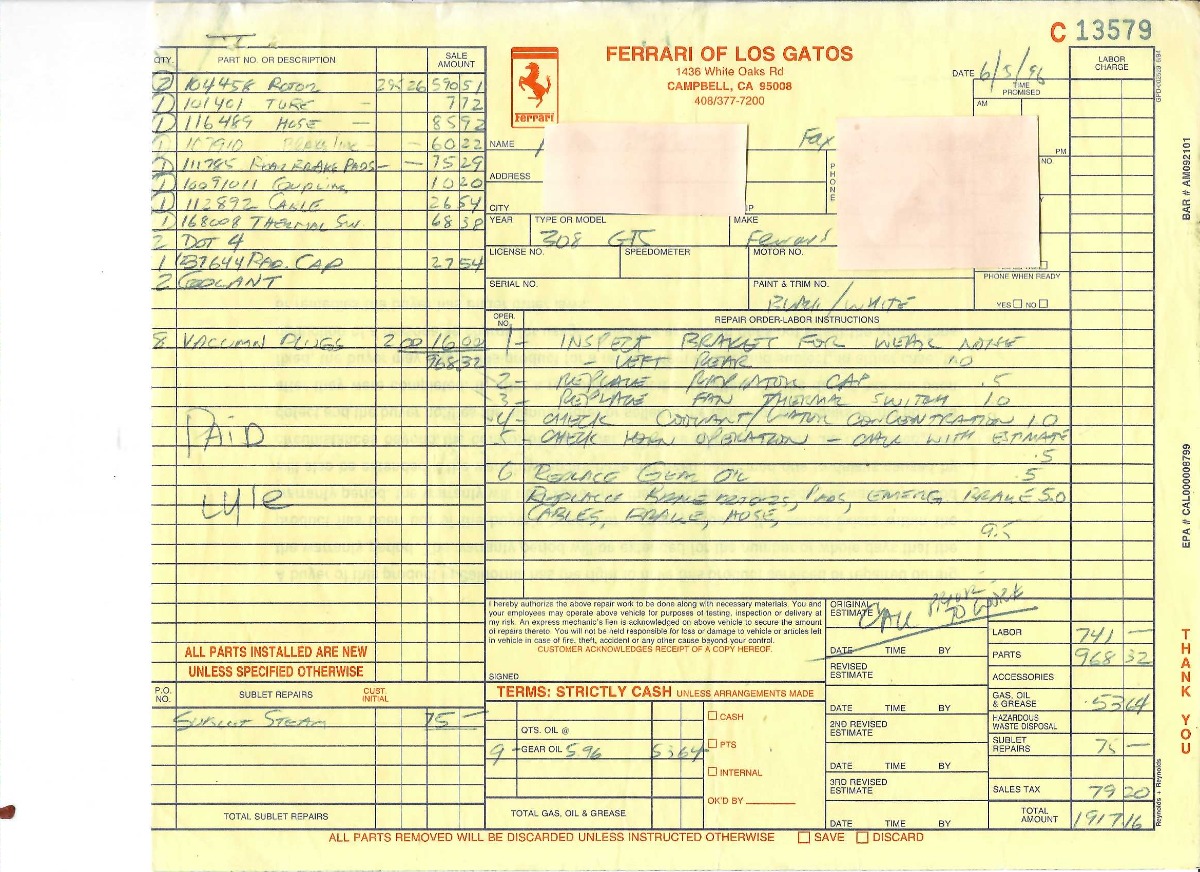 C 13579
FERRARI OF LOS GATOS
1436 White Oaks Rd
CAMPBELL, CA 95008
408/377-7200
Ferrari
DATE 6/5/96
TIME PROMISED
AM
PM
LABOR CHARGE
QTY. PART NO. OR DESCRIPTION SALE AMOUNT
2 104458 ROTOR 295 26 590 51
1 101401 TUBE — 7 72
1 116489 HOSE — 85 92
1 107910 — 60 22
1 111785 REAR BRAKE PADS — 75 29
1 10091011 COUPLING 10 20
1 112892 CABLE 26 54
1 168008 THERMAL SW. 68 38
2 DOT 4
1 RAD. CAP 27 54
2 COOLANT
8 VACUUMN PLUGS 2 00 16 00
968 32
PAID
Lyle
NAME
Fax
ADDRESS
CITY
PHONE
NO.
YEAR TYPE OR MODEL MAKE
308 GTS Ferrari
LICENSE NO. SPEEDOMETER MOTOR NO.
SERIAL NO. PAINT & TRIM NO.
BLACK/WHITE
PHONE WHEN READY
YES NO
OPER. NO. REPAIR ORDER-LABOR INSTRUCTIONS
1- INSPECT BRACKET FOR WEAR NOISE
- LEFT REAR 1.0
2- REPLACE RADIATOR CAP .5
3- REPLACE FAN THERMAL SWITCH 1.0
4- CHECK COOLANT/WATER CONCENTRATION 1.0
5- CHECK HORN OPERATION - CALL WITH ESTIMATE
.5
6 REPLACE GEAR OIL .5
REPLACE BRAKE ROTORS, PADS, EMERG BRAKE 5.0
CABLES, BRAKE, HOSE,
9.5
ALL PARTS INSTALLED ARE NEW
UNLESS SPECIFIED OTHERWISE
P.O. NO. SUBLET REPAIRS CUST. INITIAL
SUBLET STEAM 75 —
TOTAL SUBLET REPAIRS
I hereby authorize the above repair work to be done along with necessary materials. You and
your employees may operate above vehicle for purposes of testing, inspection or delivery at
my risk. An express mechanic's lien is acknowledged on above vehicle to secure the amount
of repairs thereto. You will not be held responsible for loss or damage to vehicle or articles left
in vehicle in case of fire, theft, accident or any other cause beyond your control.
CUSTOMER ACKNOWLEDGES RECEIPT OF A COPY HEREOF.
SIGNED
TERMS: STRICTLY CASH UNLESS ARRANGEMENTS MADE
QTS. OIL @
9 - GEAR OIL 5.96 53 64
TOTAL GAS, OIL & GREASE
CASH
PTS
INTERNAL
OK'D BY
ORIGINAL ESTIMATE
CALL PRIOR TO WORK
DATE TIME BY
REVISED ESTIMATE
DATE TIME BY
2ND REVISED ESTIMATE
DATE TIME BY
3RD REVISED ESTIMATE
DATE TIME BY
LABOR 741 —
PARTS 968 32
ACCESSORIES
GAS, OIL & GREASE 53 64
HAZARDOUS WASTE DISPOSAL
SUBLET REPAIRS 75 —
SALES TAX 79 20
TOTAL AMOUNT 1917 16
ALL PARTS REMOVED WILL BE DISCARDED UNLESS INSTRUCTED OTHERWISE SAVE DISCARD
BAR # AM092101
EPA # CAL000008799
THANK YOU
Reynolds + Reynolds